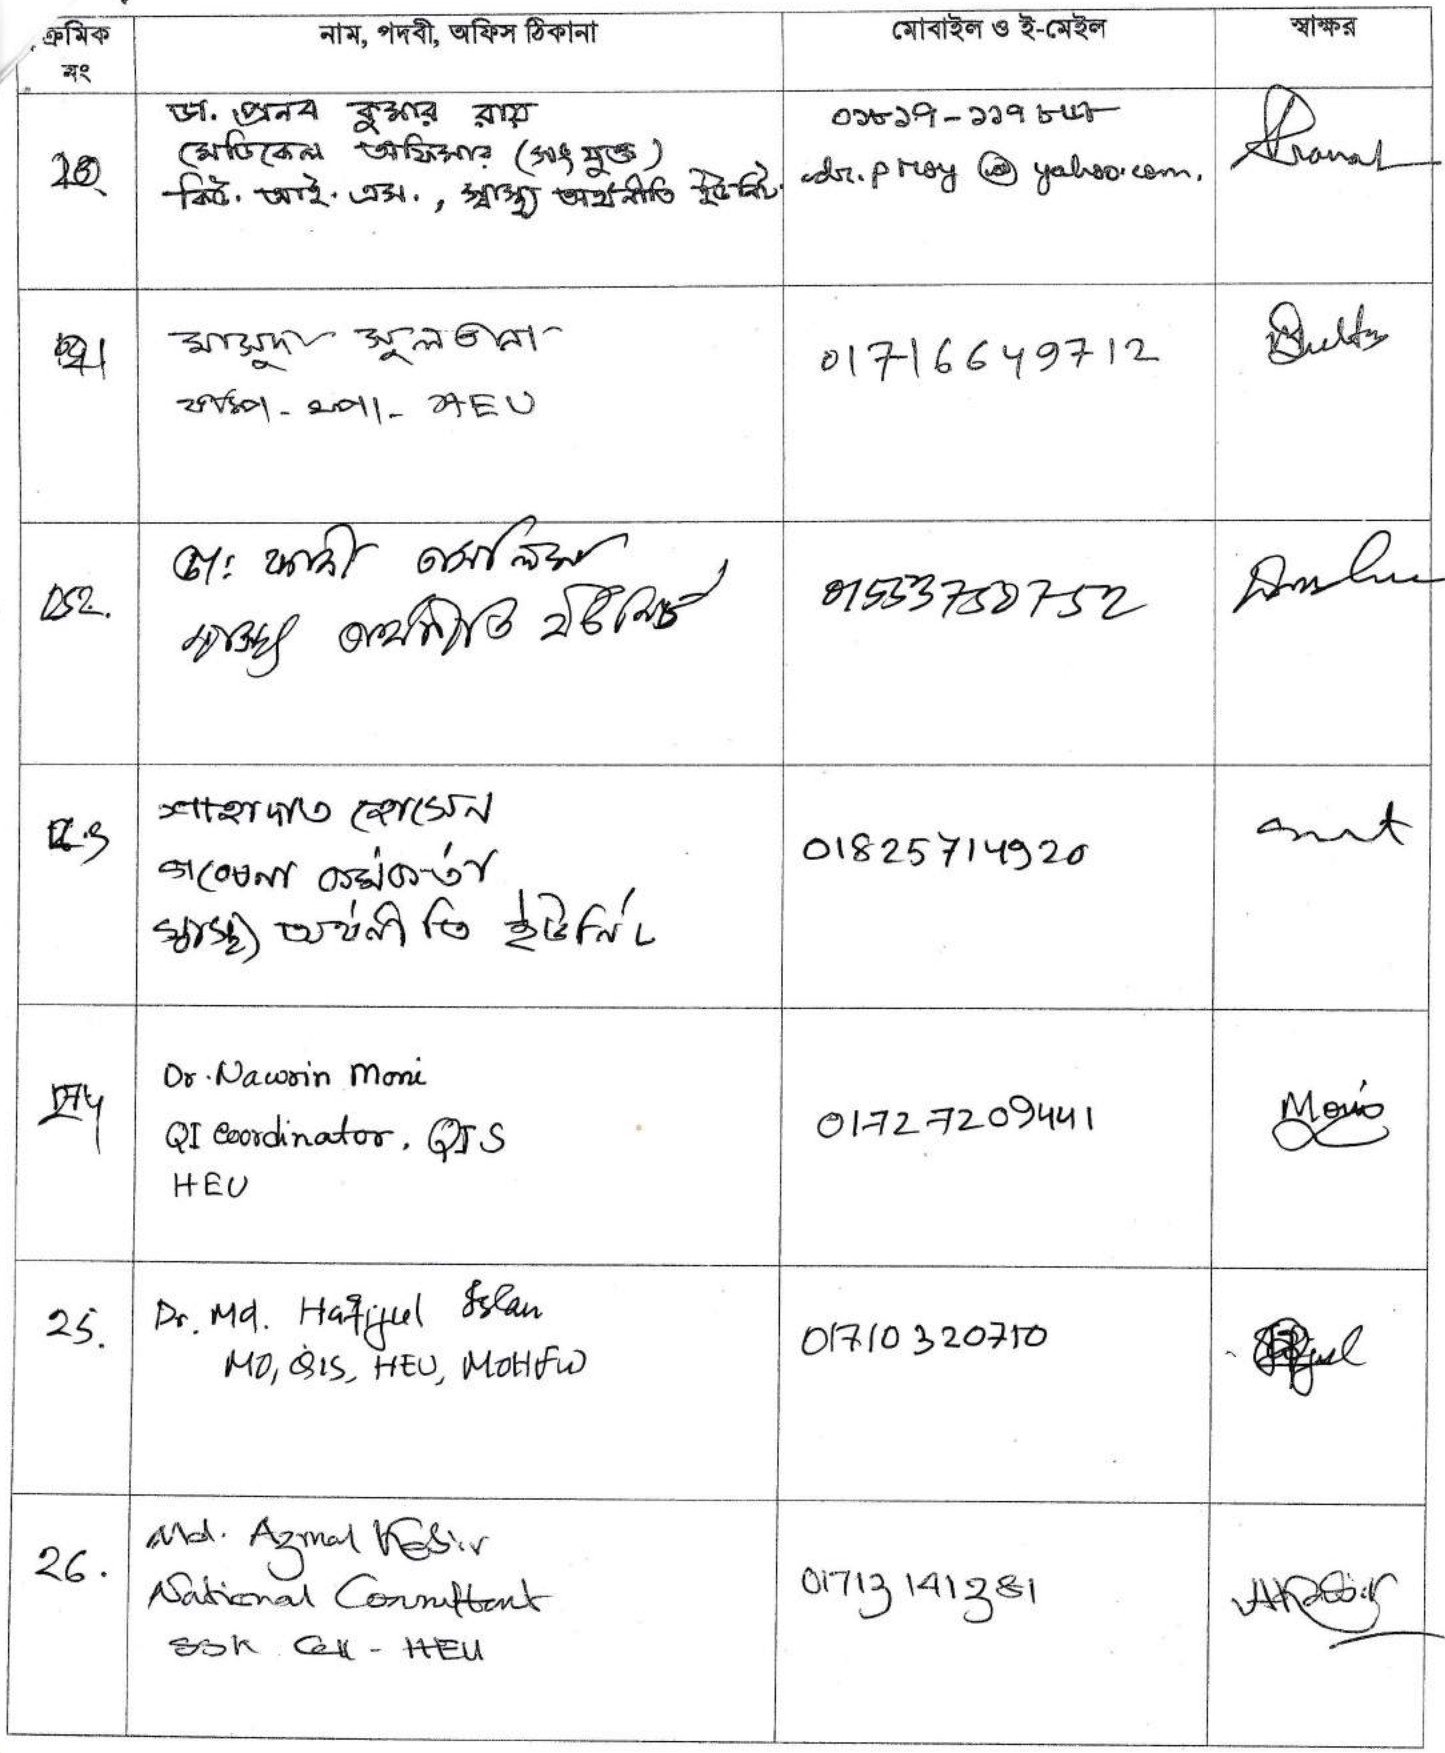 ক্রমিক নং
নাম, পদবী, অফিস ঠিকানা
মোবাইল ও ই-মেইল
স্বাক্ষর
ডা. প্রনব কুমার রায়
মেডিকেল অফিসার (সংযুক্ত)
কিউ. আই. এস., স্বাস্থ্য অর্থনীতি ইউনিট
dr.proy@yahoo.com.
মাসুদা সুলতানা
HEU
01716649712
ডা:
স্বাস্থ্য অর্থনীতি ইউনিট
শাহাদাত হোসেন
গবেষনা কর্মকর্তা
স্বাস্থ্য অর্থনীতি ইউনিট
01825714920
Dr. Nawrin Moni
QI Coordinator, QIS
HEU
01727209441
Moni
25.
Dr. Md. Hafijul Islam
MO, QIS, HEU, MOHFW
01710320710
26.
Md. Azmal Kabir
National Consultant
SSK Cell - HEU
01713141381